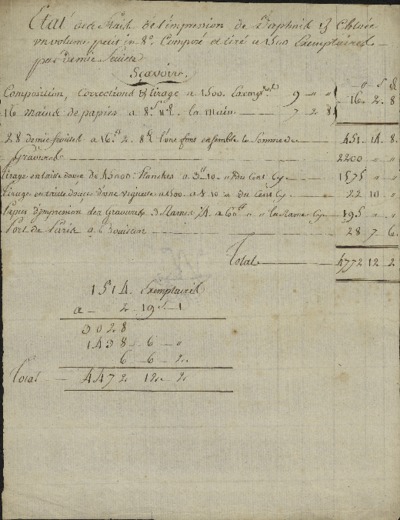 Etat des frais de l'impression de Daphnis & Chloée
un volume petit in 8.º Composé et tiré a 1500 Exemplaires
par demie feuille
Scavoire
Composition, corrections & tirage a 1500. 9 " "
16 mains de papiers a 8.s la main 7 2 8
16. 2. 8
28 demie feuilles a 16.tt 2. 8 l'une font ensemble la Somme de 451. 14. 8
Gravures 2200 " "
Tirage en taille douce de 45000 Planches a 3.tt 10 du Cent Cy 1575 " "
Tirage en taille douce d'une vignette a 1500 a 1. 10 du Cent Cy 22 10 "
Papier d'impression des Gravures 3 Rames 1/4 a 60tt la Rame Cy 195 " "
Port de Paris a Bouillon 28 7 6
Total 4772 12 2
1514 Exemplaires
a 2 19 1
3028
1438 6 0
6 6 2
Total 4472 12 2